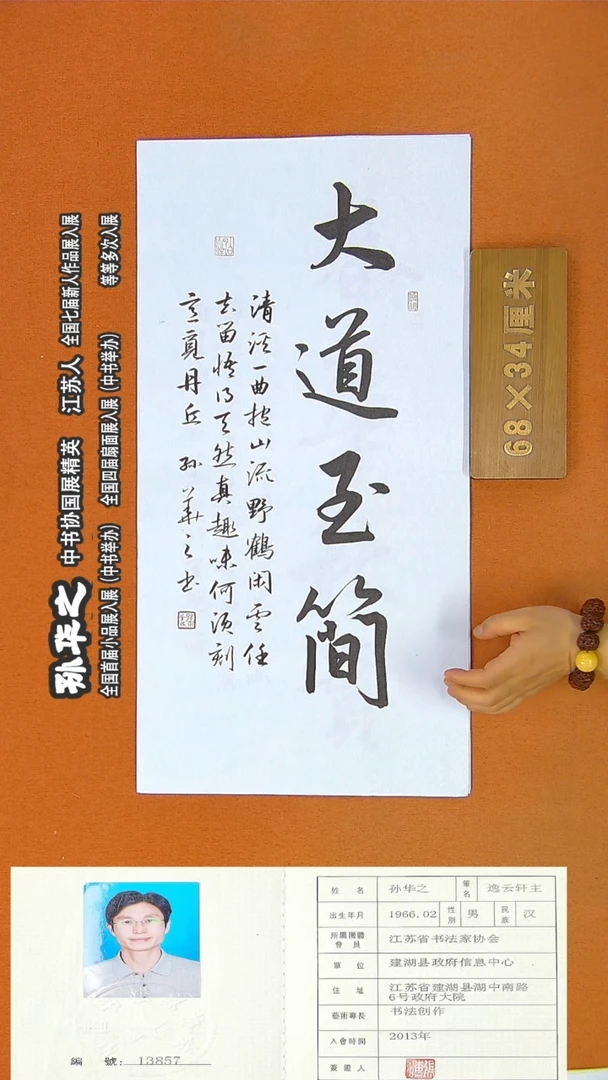 大道至簡
清溪一曲抱山流野鶴閑雲任
去留悟得天然真趣味何須刻
意覓丹丘 孫華之书
68×34厘米
孙华之 中书协国展精英 江苏人 全国七届新人作品展入展
全国首届小品展入展（中书举办） 全国四届扇面展入展（中书举办） 等等多次入展
編 號：13857
姓 名 孙华之 筆名 逸云轩主
出生年月 1966.02 性别 男 民族 汉
所屬團體
會 員 江苏省书法家协会
單 位 建湖县政府信息中心
住 址 江苏省建湖县湖中南路
6号政府大院
藝術專長 书法创作
入會時間 2013年
簽證人